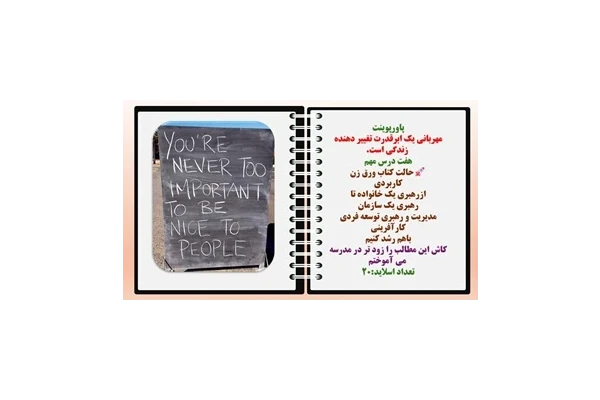 YOU'RE
NEVER TOO
IMPORTANT
TO BE
NICE TO
PEOPLE
پاورپوینت
مهربانی یک ابرقدرت تغییر دهنده
زندگی است.
هفت درس مهم
حالت کتاب ورق زن
کاربردی
ازرهبری یک خانواده تا
رهبری یک سازمان
مدیریت و رهبری توسعه فردی
کارآفرینی
باهم رشد کنیم
کاش این مطالب را زود تر در مدرسه
می آموختم
تعداد اسلاید:۲۰